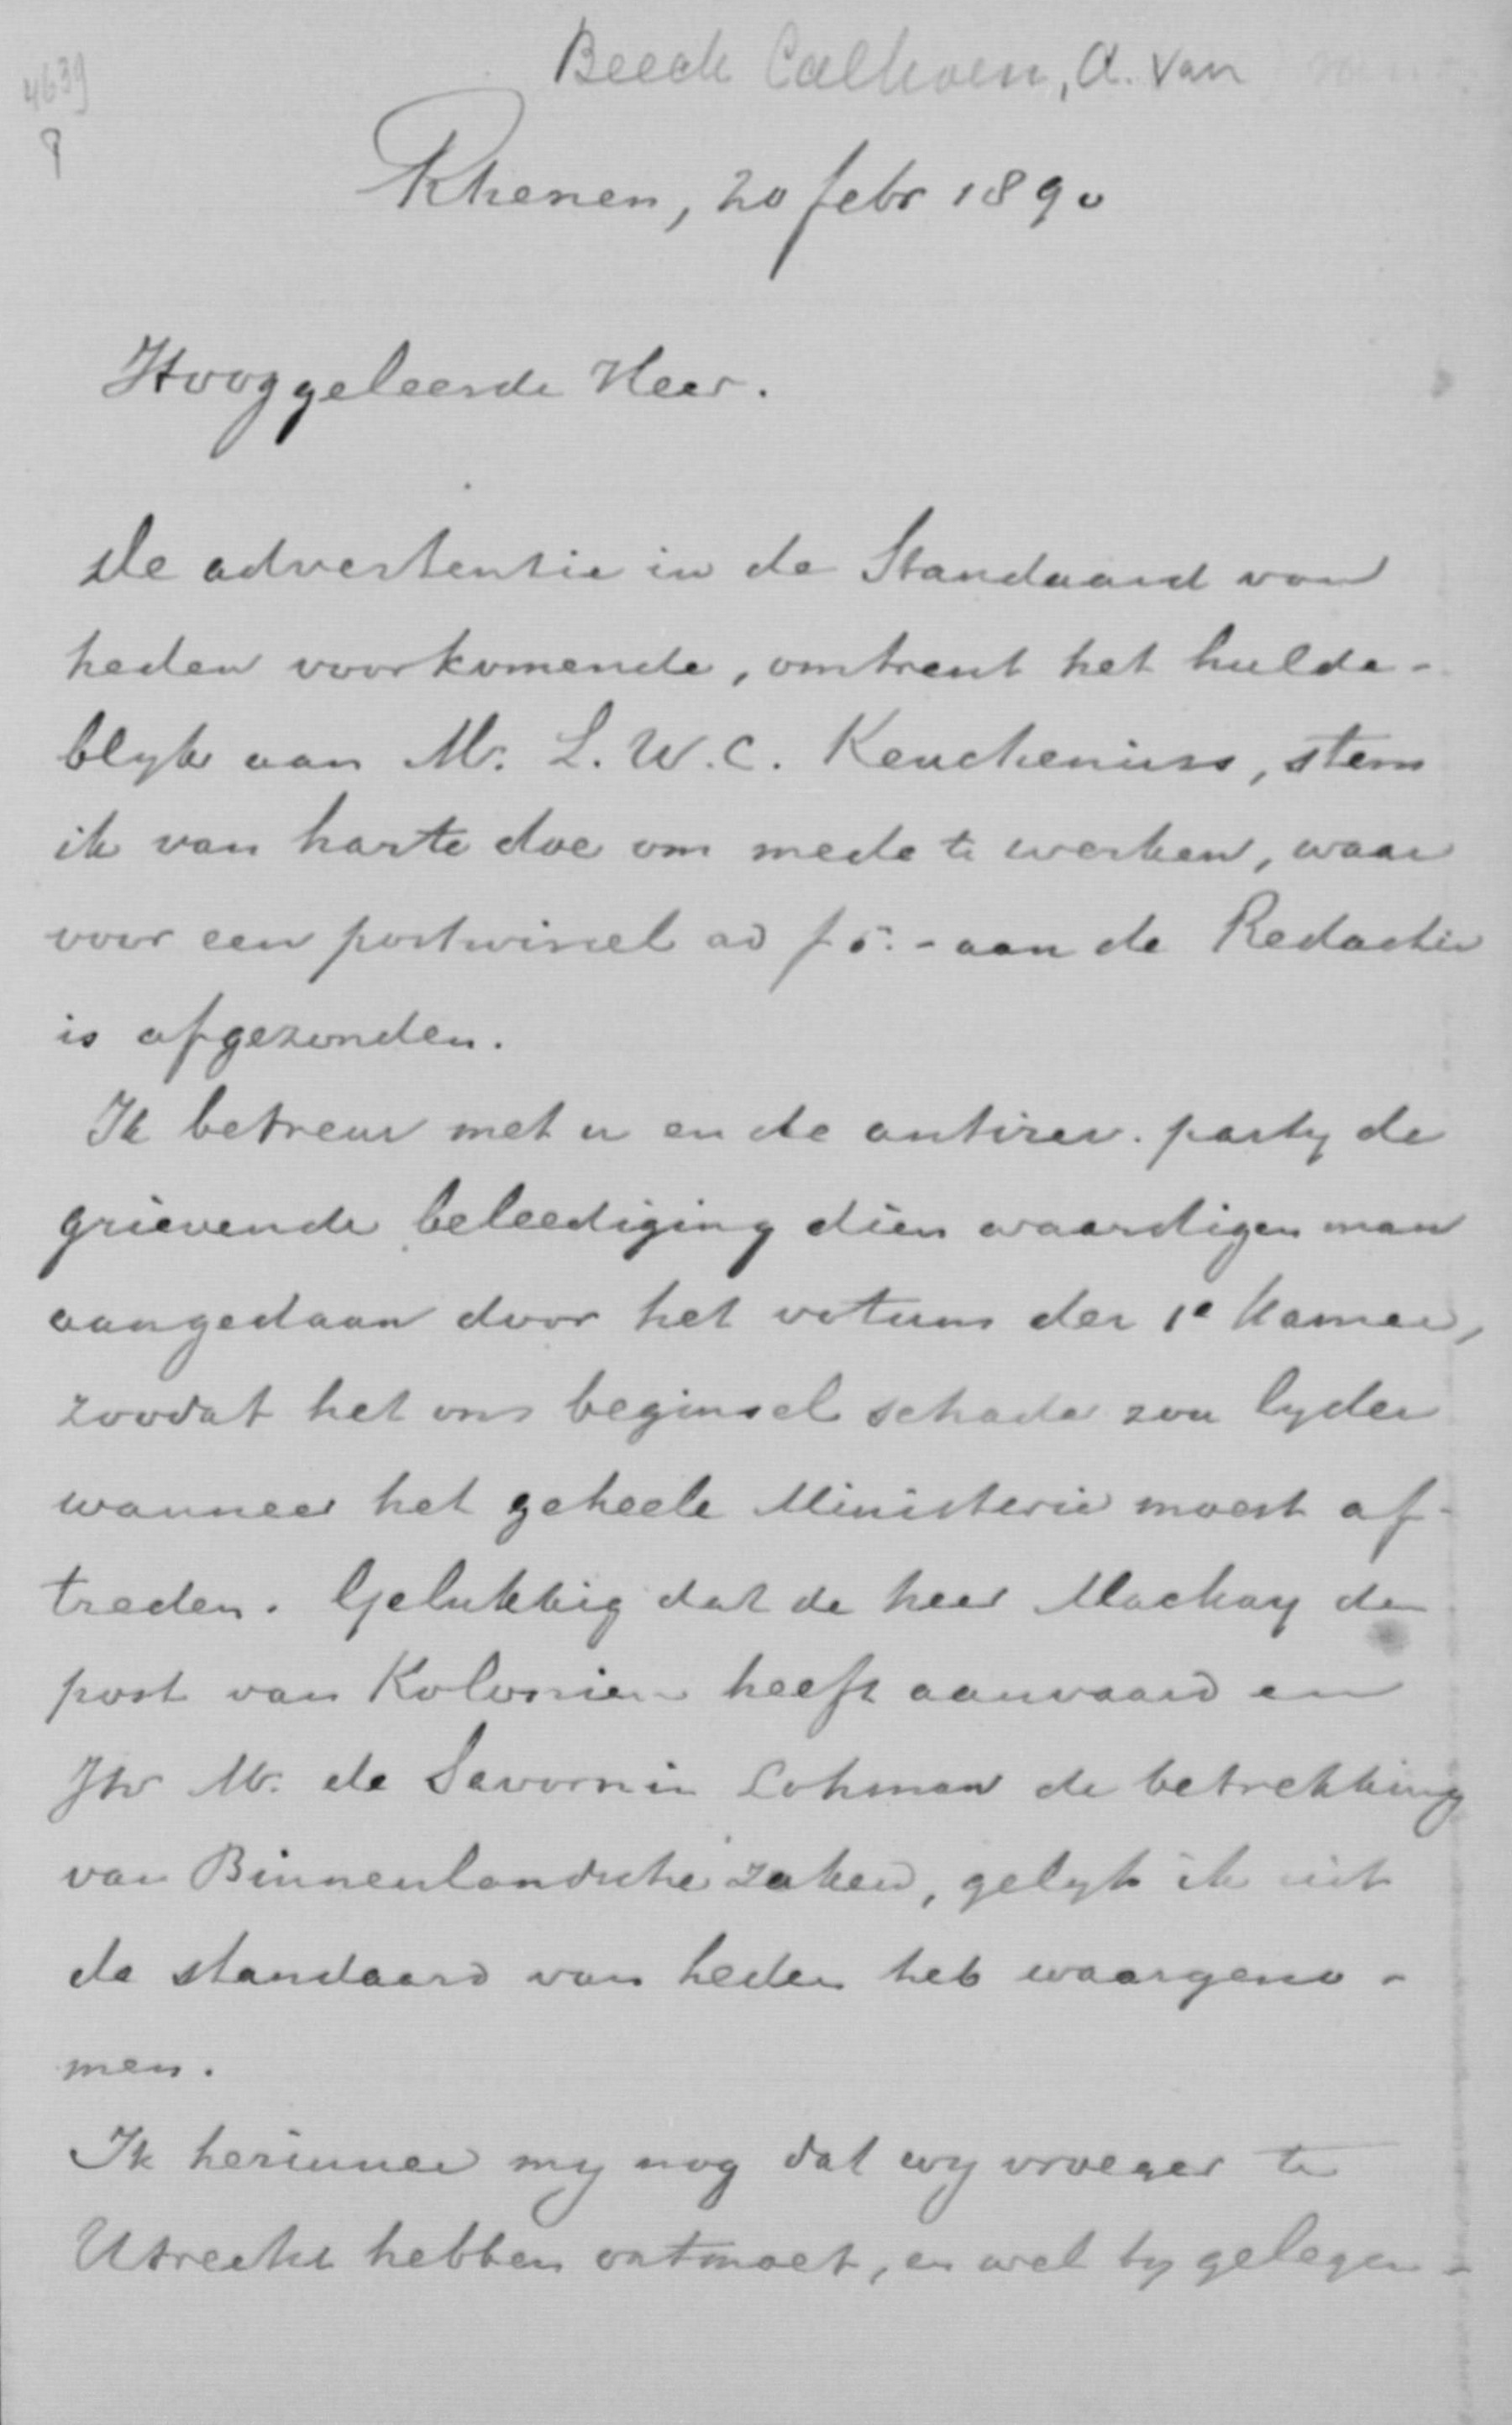 Beeck Calkoen, A. van
4639
Rhenen, 20 febr 1890
Hooggeleerde Heer.
De advertentie in de Standaard van
heden voorkomende, omtrent het hulde-
blyk aan Mr. L. W. C. Keuchenius, stem
ik van harte doe om mede te werken, waar
voor een postwissel ad f 5.- aan de Redactie
is afgezonden.
Ik betreur met u en de antirev. party de
grievende beleediging dien waardigen man
aangedaan door het votum der 1e Kamer,
zoodat het ons beginsel schade zou lyden
wanneer het geheele Ministerie moest af-
treden. Gelukkig dat de heer Mackay de
post van Koloniën heeft aanvaard en
Jhr Mr. de Savornin Lohman de betrekking
van Binnenlandsche zaken, gelyk ik uit
de standaard van heden heb waargeno-
men.
Ik herinner my nog dat wy vroeger te
Utrecht hebben ontmoet, en wel by gelegen-